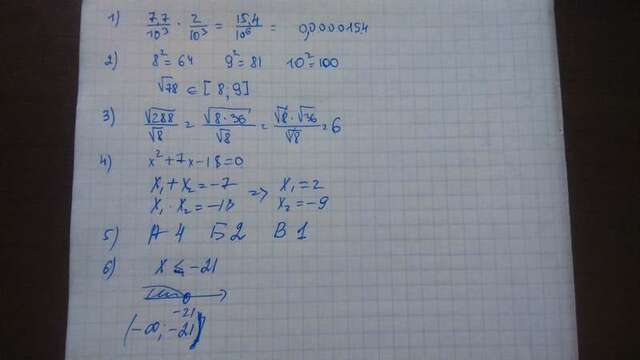 1) 7,7/10³ · 2/10³ = 15,4/10⁶ = 0,0000154
2) 8² = 64 9² = 81 10² = 100
√78 ∈ [8; 9]
3) √288/√8 = √8·36/√8 = √8·√36/√8 = 6
4) x² + 7x - 18 = 0
x₁ + x₂ = -7 => x₁ = 2
x₁ · x₂ = -18 x₂ = -9
5) А 4 Б 2 В 1
6) x ≤ -21
-21
(-∞; -21]